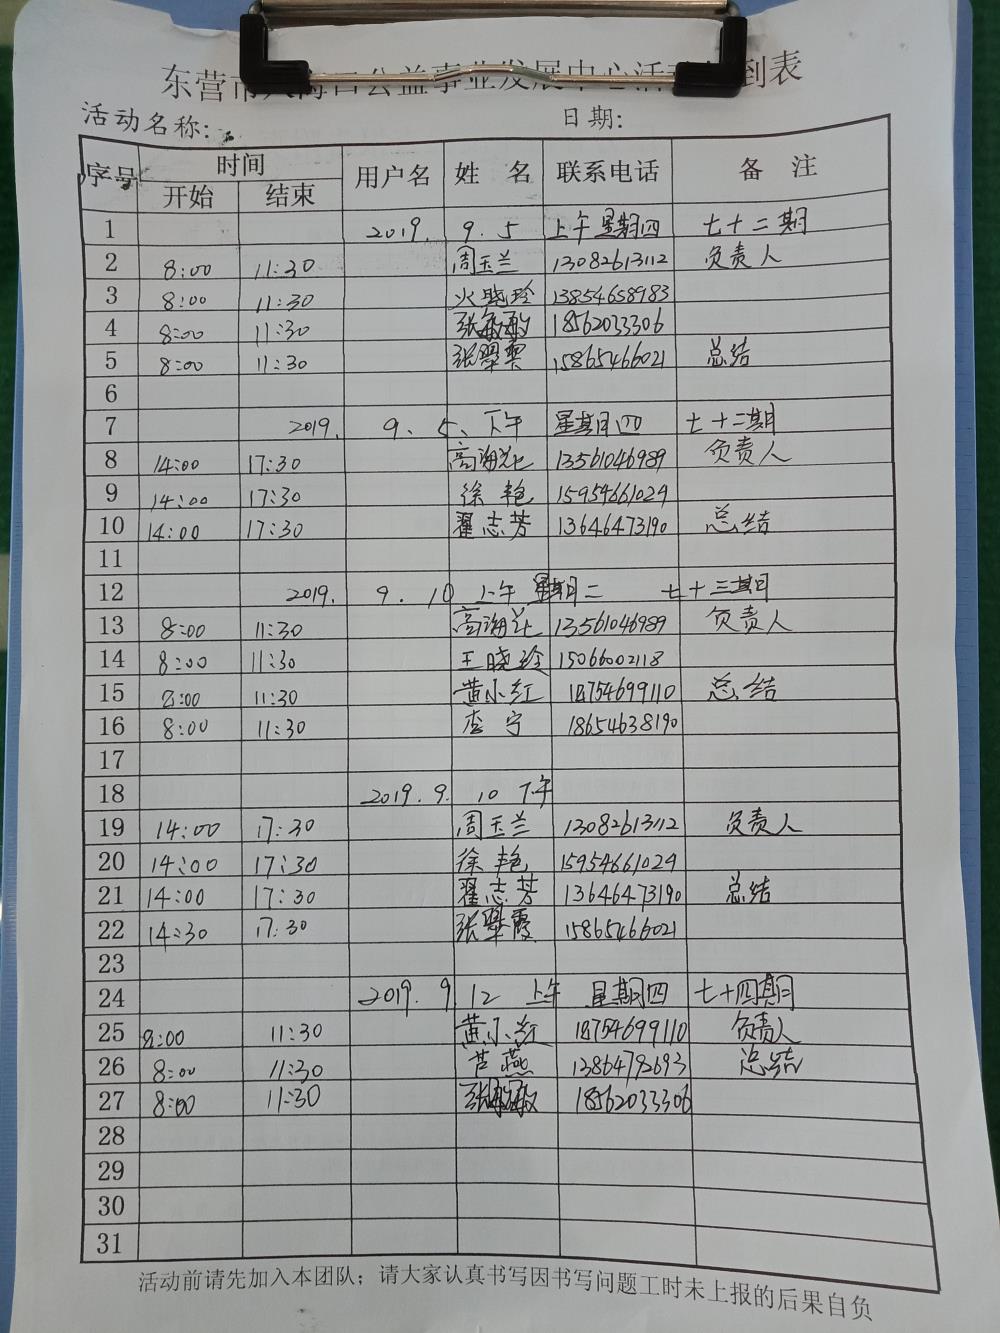 东营市 公益事业发展中心活动 到表
活动名称: 日期:
序号 时间 用户名 姓 名 联系电话 备 注
开始 结束
1 2019. 9.5 上午 星期四 七十二期
2 8:00 11:30 周玉兰 13082613112 负责人
3 8:00 11:30 火晓玲 13854658983
4 8:00 11:30 张敏敏 18562033306
5 8:00 11:30 张翠 15865466021 总结
6
7 2019. 9、5、下午 星期四 七十二期
8 14:00 17:30 高海花 13561046989 负责人
9 14:00 17:30 徐艳 15954661029
10 14:00 17:30 翟志芳 13646473190 总结
11
12 2019. 9.10 上午 星期二 七十三期
13 8:00 11:30 高海花 13561046989 负责人
14 8:00 11:30 王晓玲 15066002118
15 8:00 11:30 黄小红 18754699110 总结
16 8:00 11:30 李宁 18654638190
17
18 2019.9. 10 下午
19 14:00 17:30 周玉兰 13082613112 负责人
20 14:00 17:30 徐艳 15954661029
21 14:00 17:30 翟志芳 13646473190 总结
22 14:30 17:30 张翠霞 15865466021
23
24 2019.9 12 上午 星期四 七十四期
25 8:00 11:30 黄小红 18754699110 负责人
26 8:00 11:30 芦燕 13864792693 总结
27 8:00 11:30 张敏敏 18562033306
28
29
30
31
活动前请先加入本团队；请大家认真书写因书写问题工时未上报的后果自负